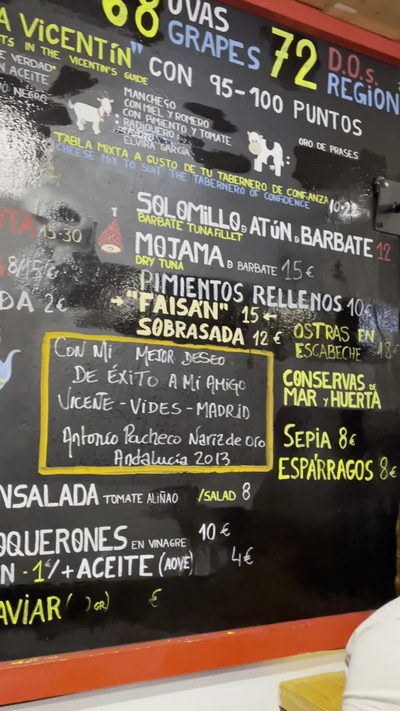 68 UVAS
GRAPES 72 D.O.s.
REGION
A VICENTÍN"
TS IN THE VICENTIN'S GUIDE
CON 95-100 PUNTOS
E VERDAD"
N ACEITE"
VO NEGRO
MANCHEGO
CON MIEL Y ROMERO
CON PIMIENTO Y TOMATE
RADIQUERO
ELVIRA GARCÍA
ORO DE PRASES
TABLA MIXTA A GUSTO DE TU TABERNERO DE CONFIANZA
CHEESE MIX TO SUIT THE TABERNERO OF CONFIDENCE 10-22
SOLOMILLO D ATÚN D BARBATE 12
BARBATE TUNA FILLET
TA 15-30
MOJAMA D BARBATE 15€
DRY TUNA
8/15/
PIMIENTOS RELLENOS 10€
DA 2€
"FAISÁN" 15
SOBRASADA 12€
OSTRAS EN
ESCABECHE 18€
CON MI MEJOR DESEO
DE ÉXITO A MI AMIGO
VICENTE-VIDES-MADRID
Antonio Pacheco Nariz de oro
Andalucía 2013
CONSERVAS DE
MAR Y HUERTA
SEPIA 8€
ESPÁRRAGOS 8€
NSALADA TOMATE ALIÑAO /SALAD 8
OQUERONES EN VINAGRE 10€
N -1€/+ACEITE (AOVE) 4€
AVIAR ( ) GR) €